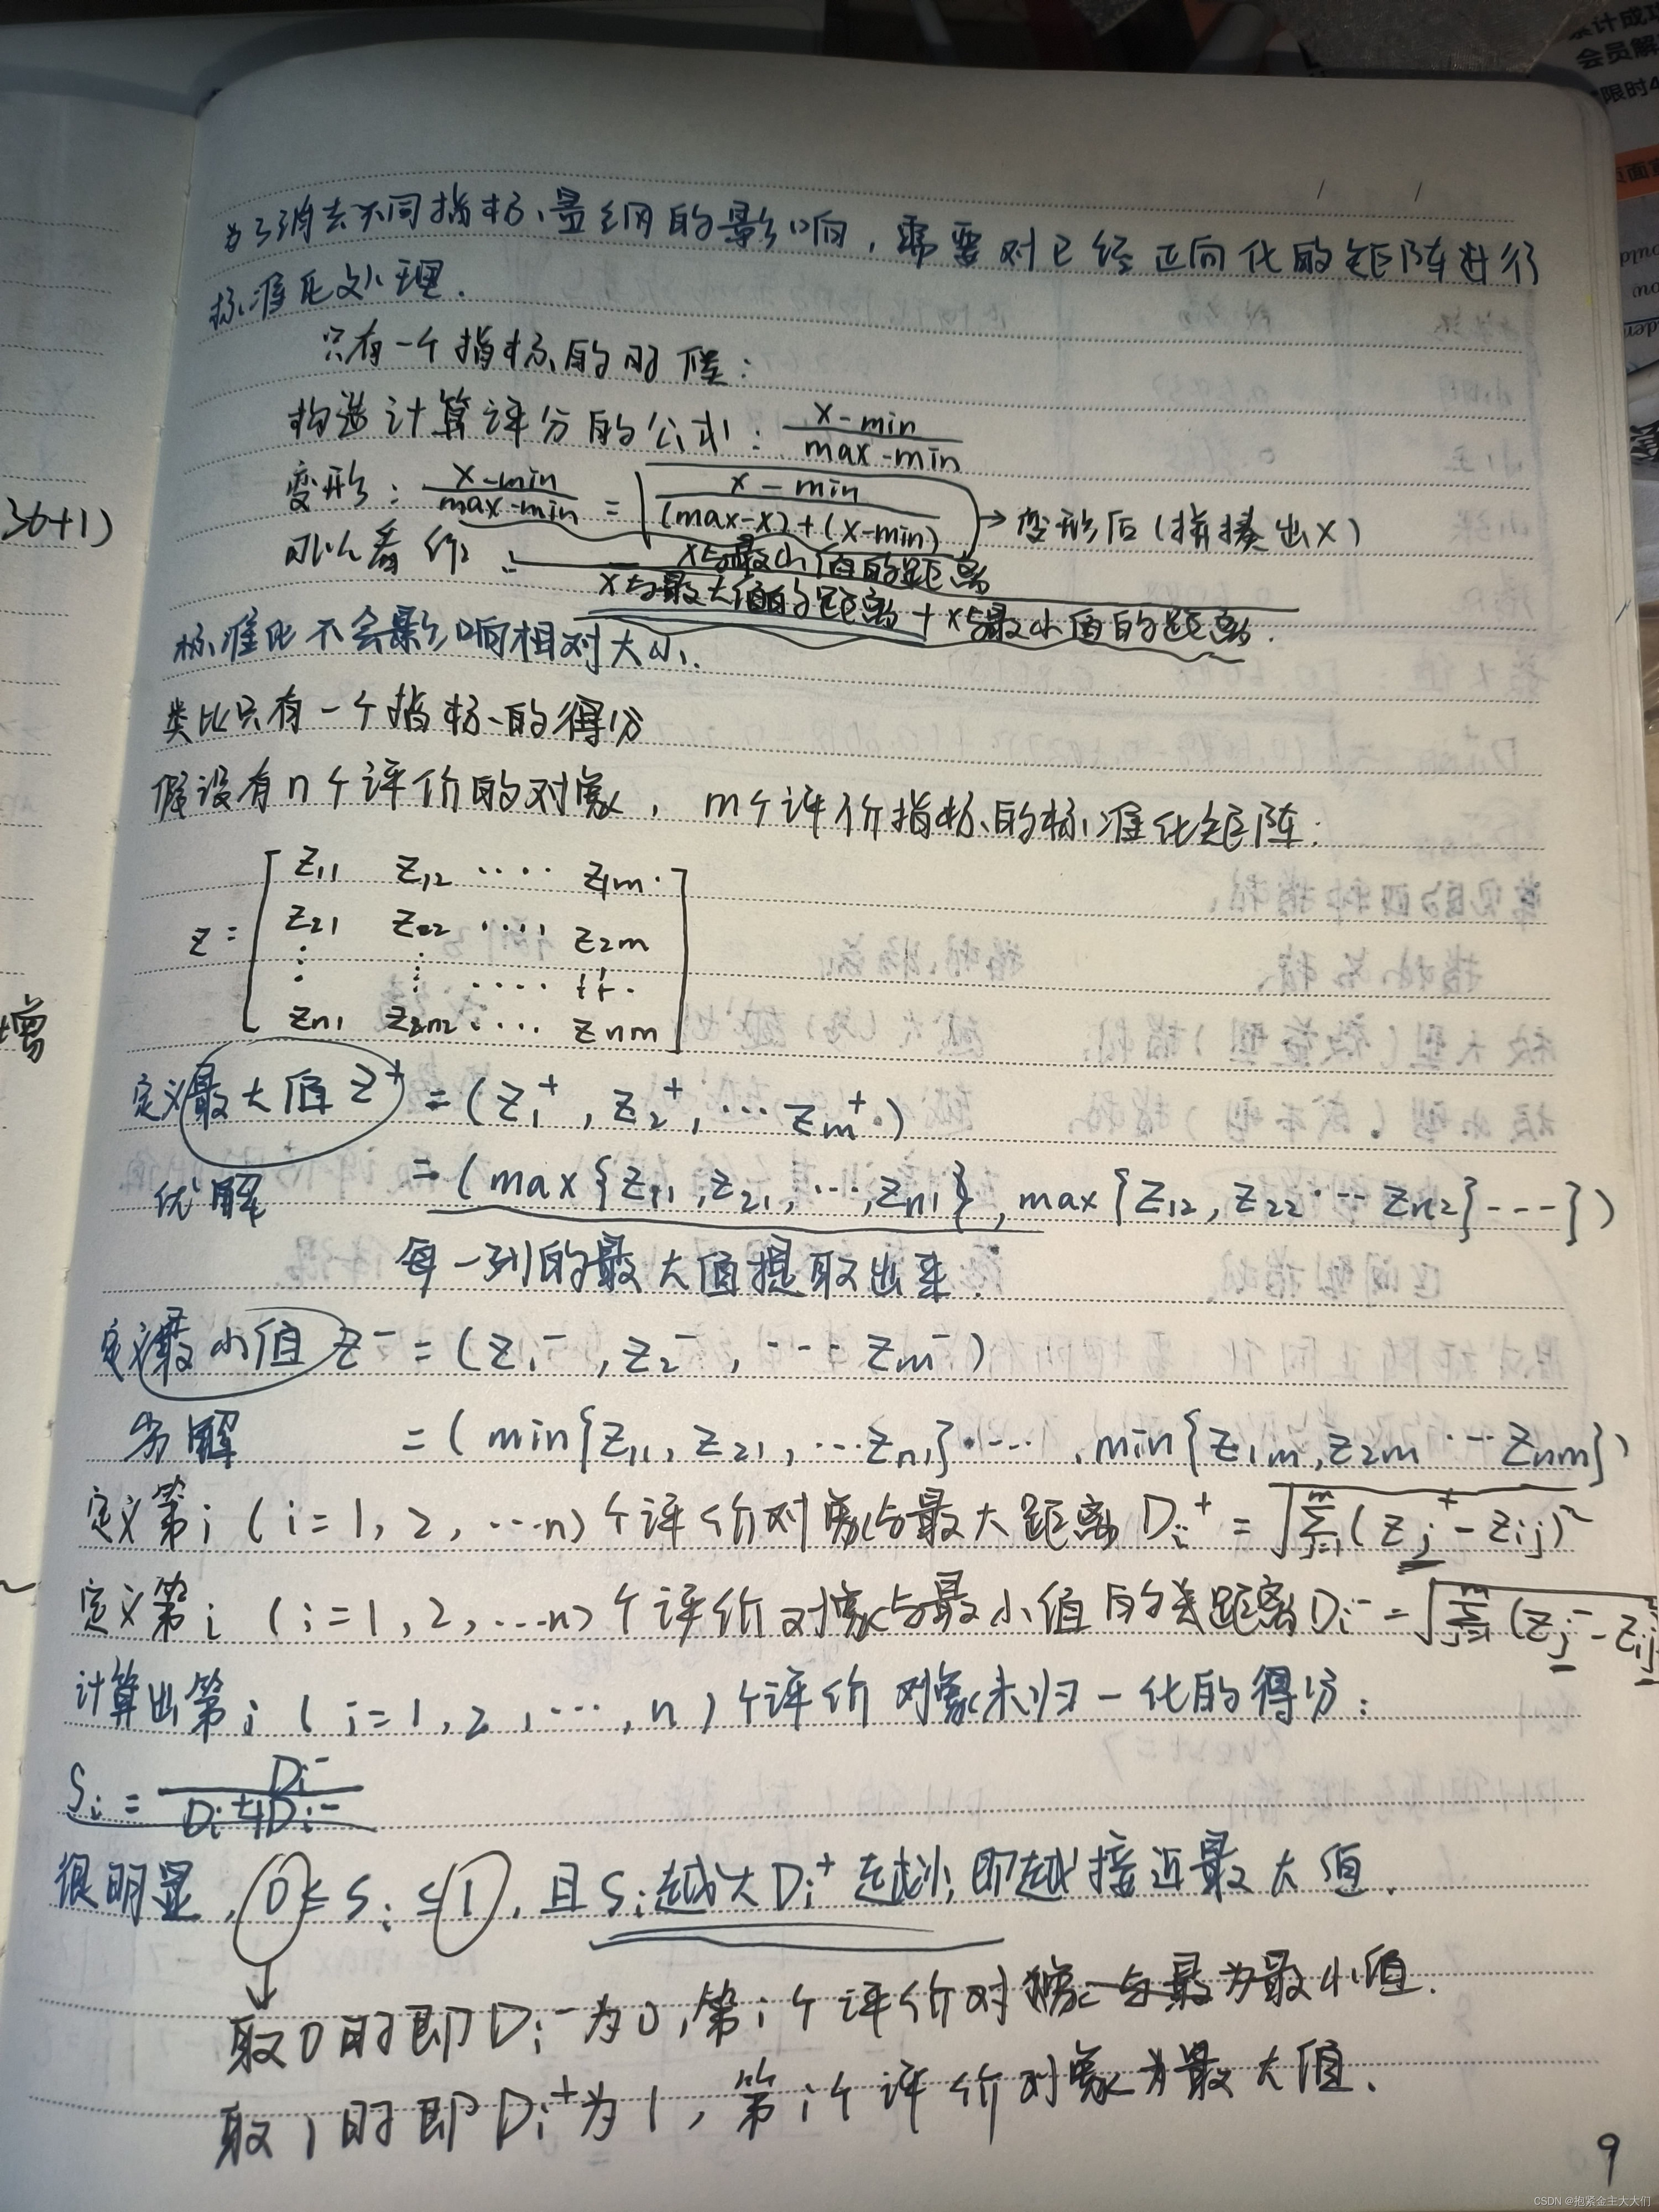 为了消去不同指标量纲的影响，需要对已经正向化的矩阵进行
标准化处理.
只有一个指标的时候：
构造计算评分的公式：(x-min)/(max-min)
变形：(x-min)/(max-min) = (x-min)/((max-x)+(x-min)) → 变形后(拼凑出x)
可以看作：x与最小值的距离/(x与最大值的距离+x与最小值的距离).
标准化不会影响相对大小.
类比只有一个指标的得分
假设有n个评价的对象，m个评价指标的标准化矩阵：
Z11 Z12 ···· Z1m
Z = Z21 Z22 ···· Z2m
Zn1 Zn2 ···· Znm
定义最大值 Z+ = (Z1+, Z2+, ··· Zm+)
优解 = (max{Z11, Z21, ···, Zn1}, max{Z12, Z22 ··· Zn2} ---})
每一列的最大值提取出来.
定义最小值 Z- = (Z1-, Z2-, ··· Zm-)
劣解 = (min{Z11, Z21, ···Zn1} ····, min{Z1m, Z2m ··· Znm})
定义第i (i=1, 2, ···n) 个评价对象与最大距离 Di+ = √(∑(j=1..m)(Zj+ - Zij)²)
定义第i (i=1, 2, ···n) 个评价对象与最小值的距离 Di- = √(∑(j=1..m)(Zj- - Zij
计算出第i (i=1, 2, ···, n) 个评价对象未归一化的得分：
Si = Di-/(Di+ + Di-)
很明显, 0≤Si≤1, 且Si越大Di+越小, 即越接近最大值.
取0时即Di-为0, 第i个评价对象为最小值.
取1时即Di+为1, 第i个评价对象为最大值.
9
3b+1)
增
计成功
会员解
限时4
页面
CSDN @抱紧金主大大们